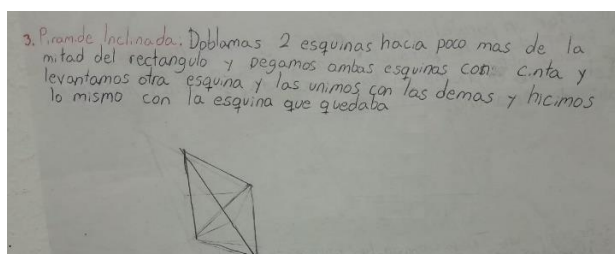 3. Piramide Inclinada. Doblamas 2 esquinas hacia poco mas de la
mitad del rectangulo y pegamos ambas esquinas con cinta y
levantamos otra esquina y las unimos con las demas y hicimos
lo mismo con la esquina que quedaba